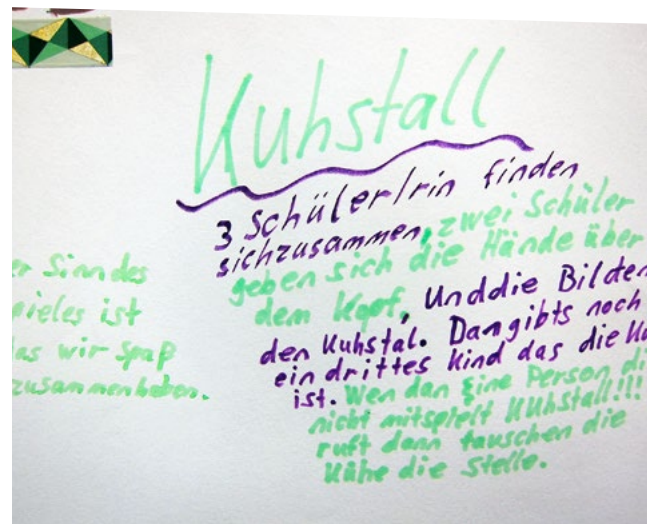 Kuhstall
3 Schüler/rin finden
sichzusammen, zwei Schüler
geben sich die Hände über
dem Kopf, Unddie Bilden
den Kuhstal. Dangibts noch
ein drittes Kind das die
ist. Wen dan Eine Person
nicht mitspielt KUhstall!!!
ruft dann tauschen die
Kühe die Stelle.
Sinn des
ist
wir Spaß
zusammenhaben.